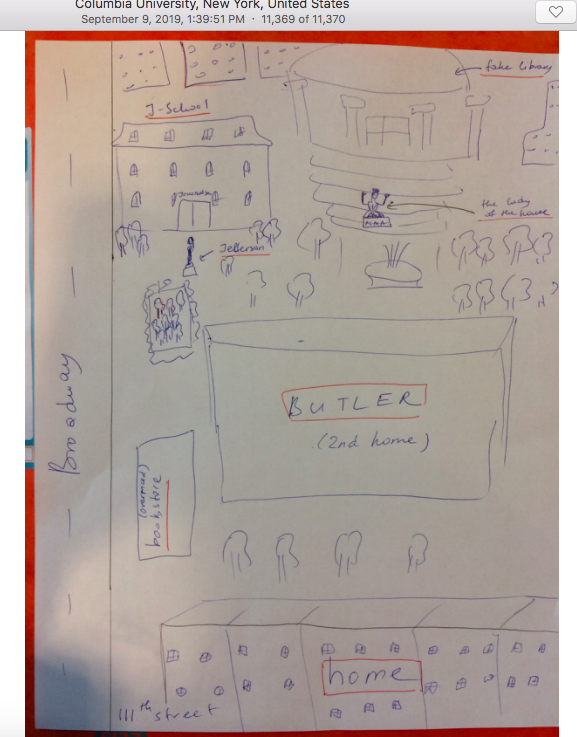 Columbia University, New York, United States
September 9, 2019, 1:39:51 PM · 11,369 of 11,370
fake library
J-School
Journalism
the lady
of the house
Jefferson
BUTLER
(2nd home)
Broadway
(overpriced)
bookstore
home
111th street